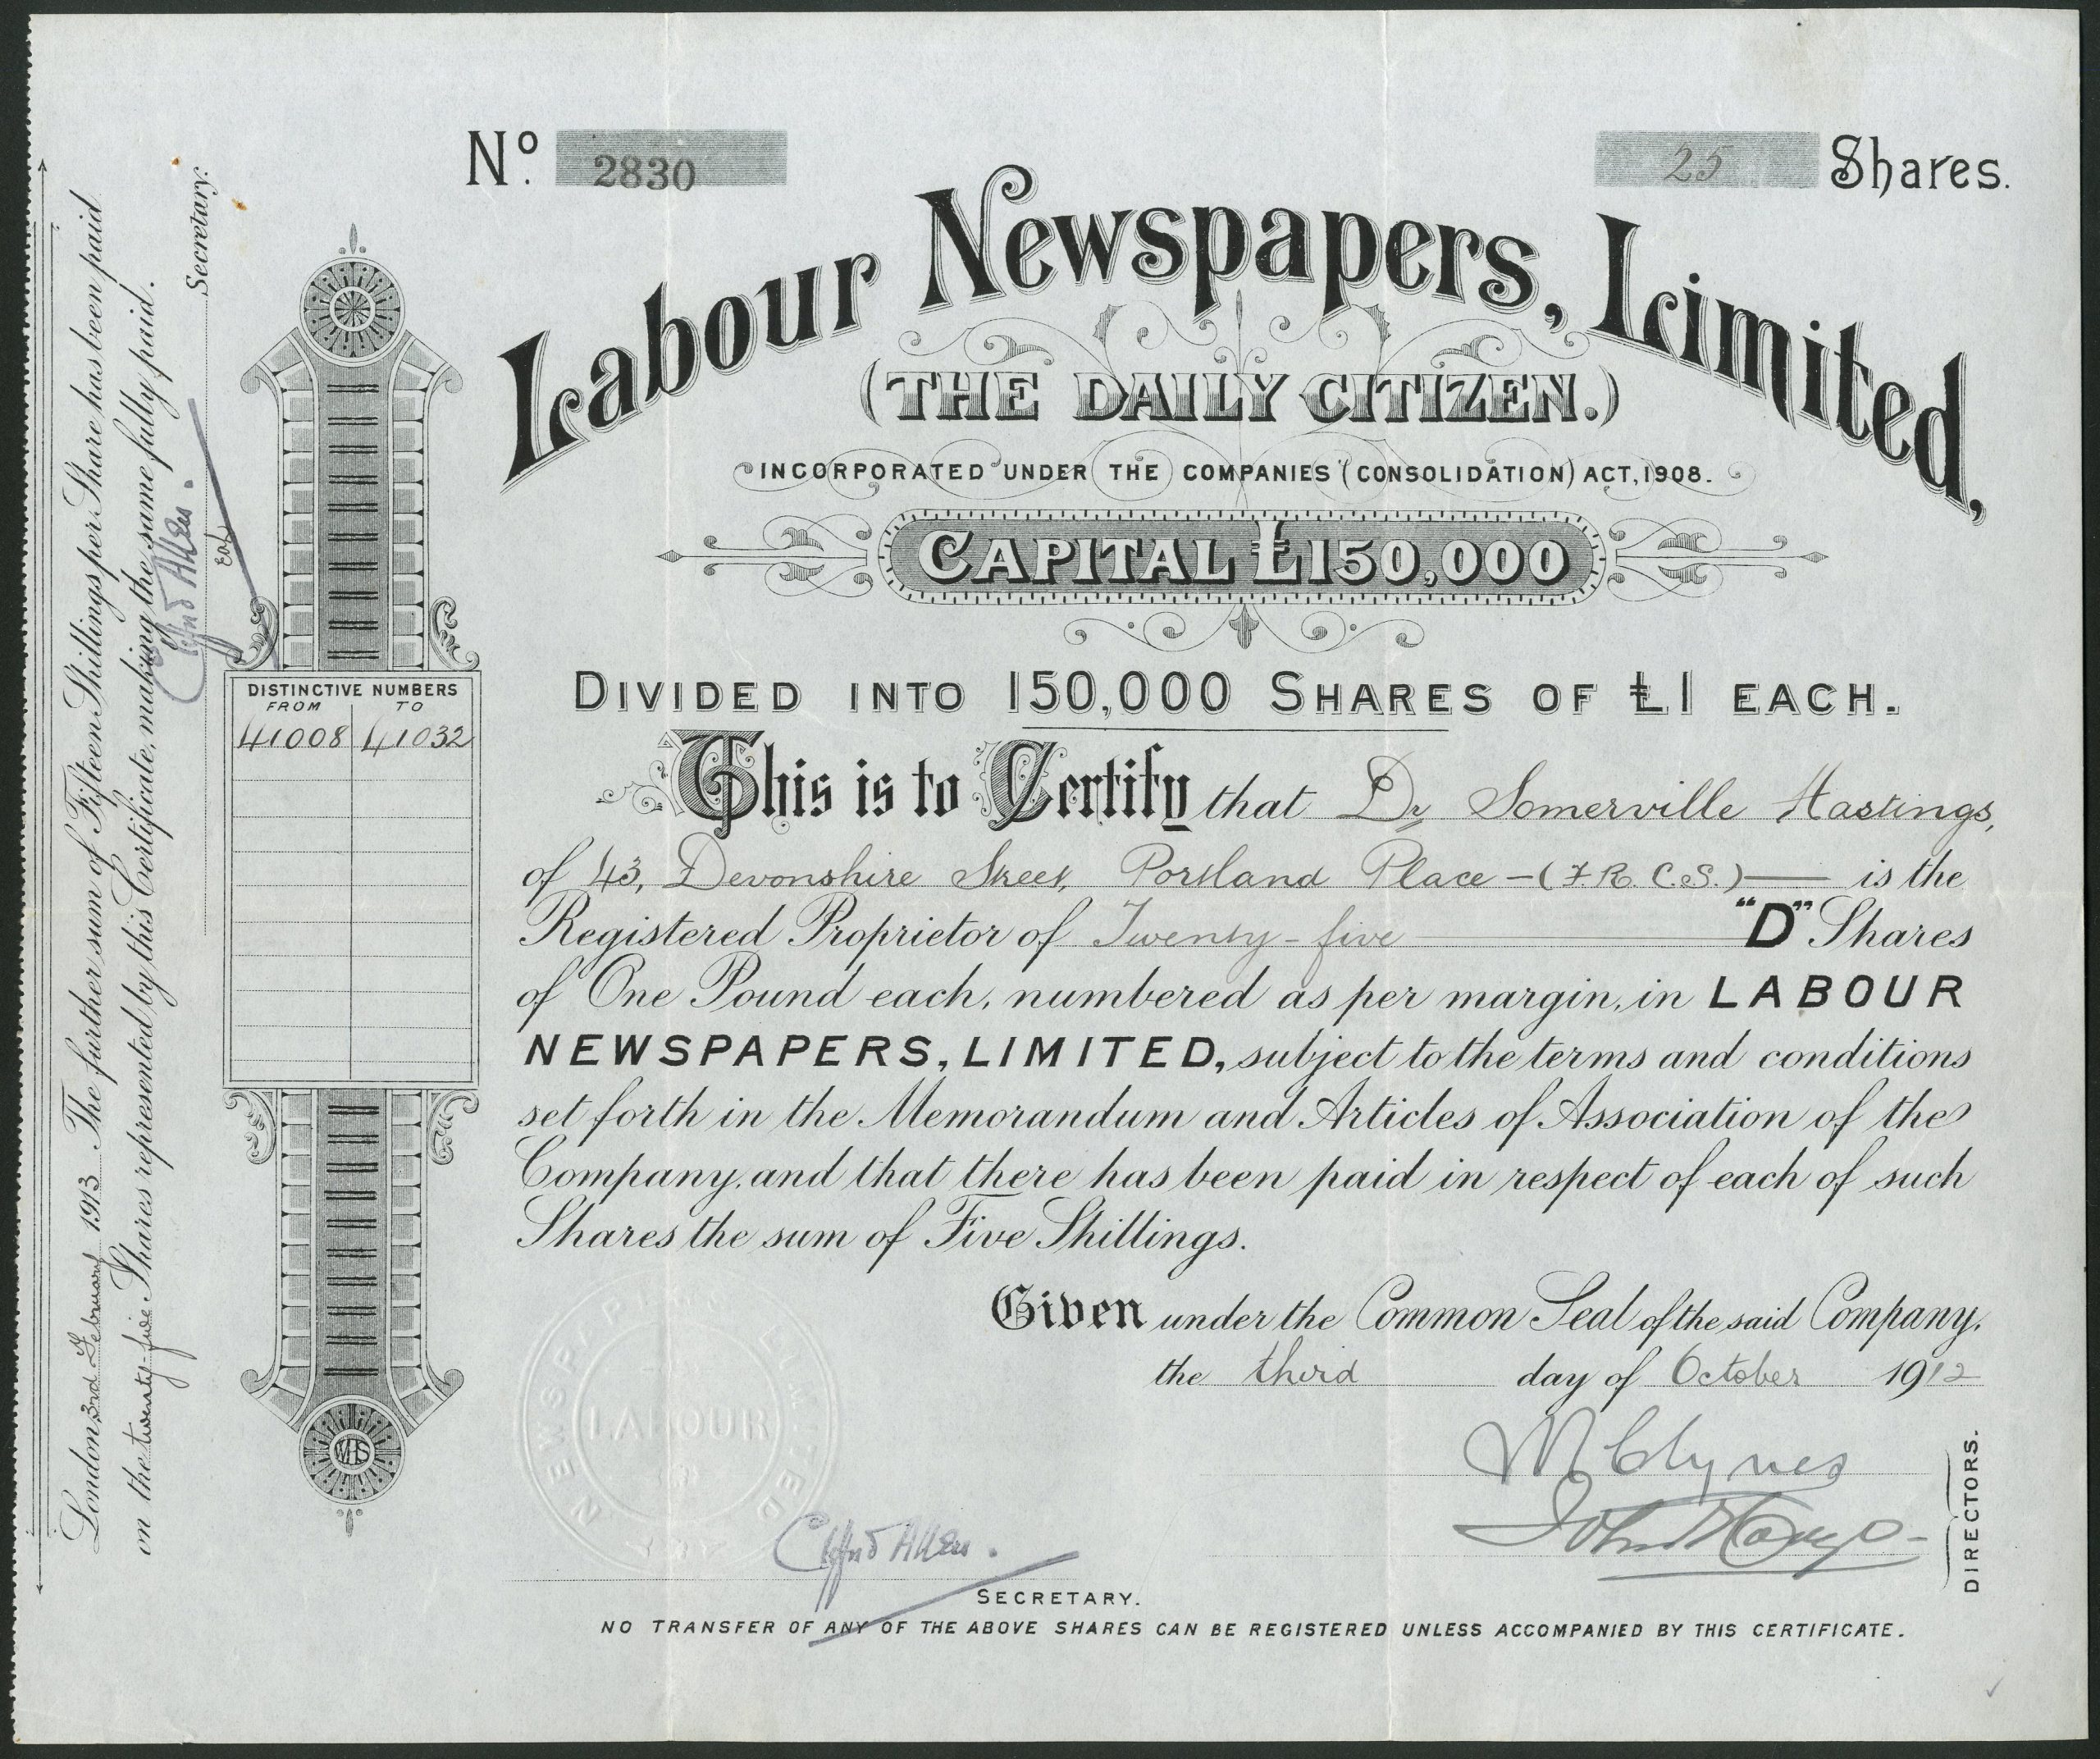 Nº. 2830
25 Shares.
Labour Newspapers, Limited,
(THE DAILY CITIZEN.)
INCORPORATED UNDER THE COMPANIES (CONSOLIDATION) ACT, 1908.
CAPITAL £150,000
DIVIDED INTO 150,000 SHARES OF £1 EACH.
This is to Certify that Dr Somerville Hastings,
of 43, Devonshire Street, Portland Place - (F.R.C.S.) is the
Registered Proprietor of Twenty-five "D" Shares
of One Pound each, numbered as per margin, in LABOUR
NEWSPAPERS, LIMITED, subject to the terms and conditions
set forth in the Memorandum and Articles of Association of the
Company, and that there has been paid in respect of each of such
Shares the sum of Five Shillings.
Given under the Common Seal of the said Company,
the third day of October 1912
Clynes
John
DIRECTORS.
Cliffd Allen.
SECRETARY.
NO TRANSFER OF ANY OF THE ABOVE SHARES CAN BE REGISTERED UNLESS ACCOMPANIED BY THIS CERTIFICATE.
DISTINCTIVE NUMBERS
FROM TO
41008 41032
WHS
London 3rd February 1913 The further sum of Fifteen Shillings per Share has been paid
on the twenty-five Shares represented by this Certificate, making the same fully paid.
Cliffd Allen.
Secretary.
LABOUR
NEWSPAPERS LIMITED